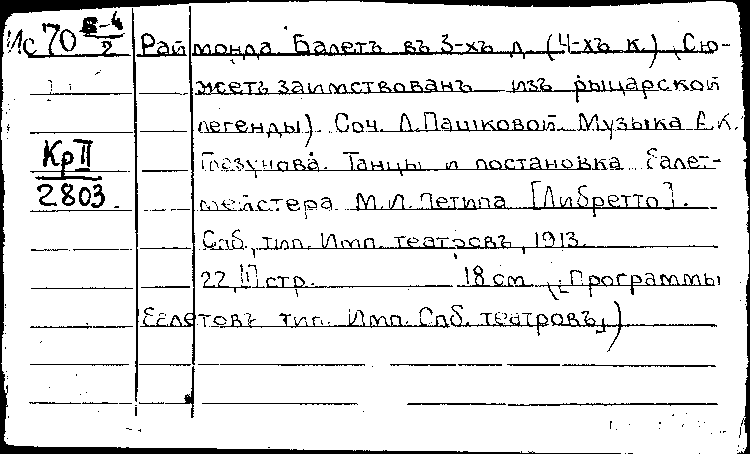 Ис 70 6-4/2
Раймонда Балетъ въ 3-хъ д. (4-хъ к.), Сю-
жетъ заимствованъ изъ рыцарской
легенды). Соч. Л. Пашковой. Музыка А. К.
КрII
2803.
Глазунова. Танцы и постановка балет-
мейстера М. И. Петипа [Либретто].
Спб., тип. Имп. театровъ, 1913.
22, II стр. 18 см. („Программы
балетовъ тип. Имп. Спб. театровъ„)